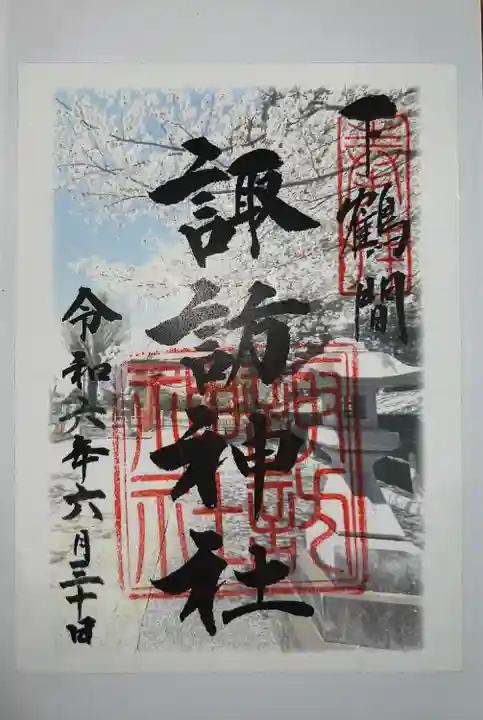 下鶴間
諏訪神社
令和六年六月三十日